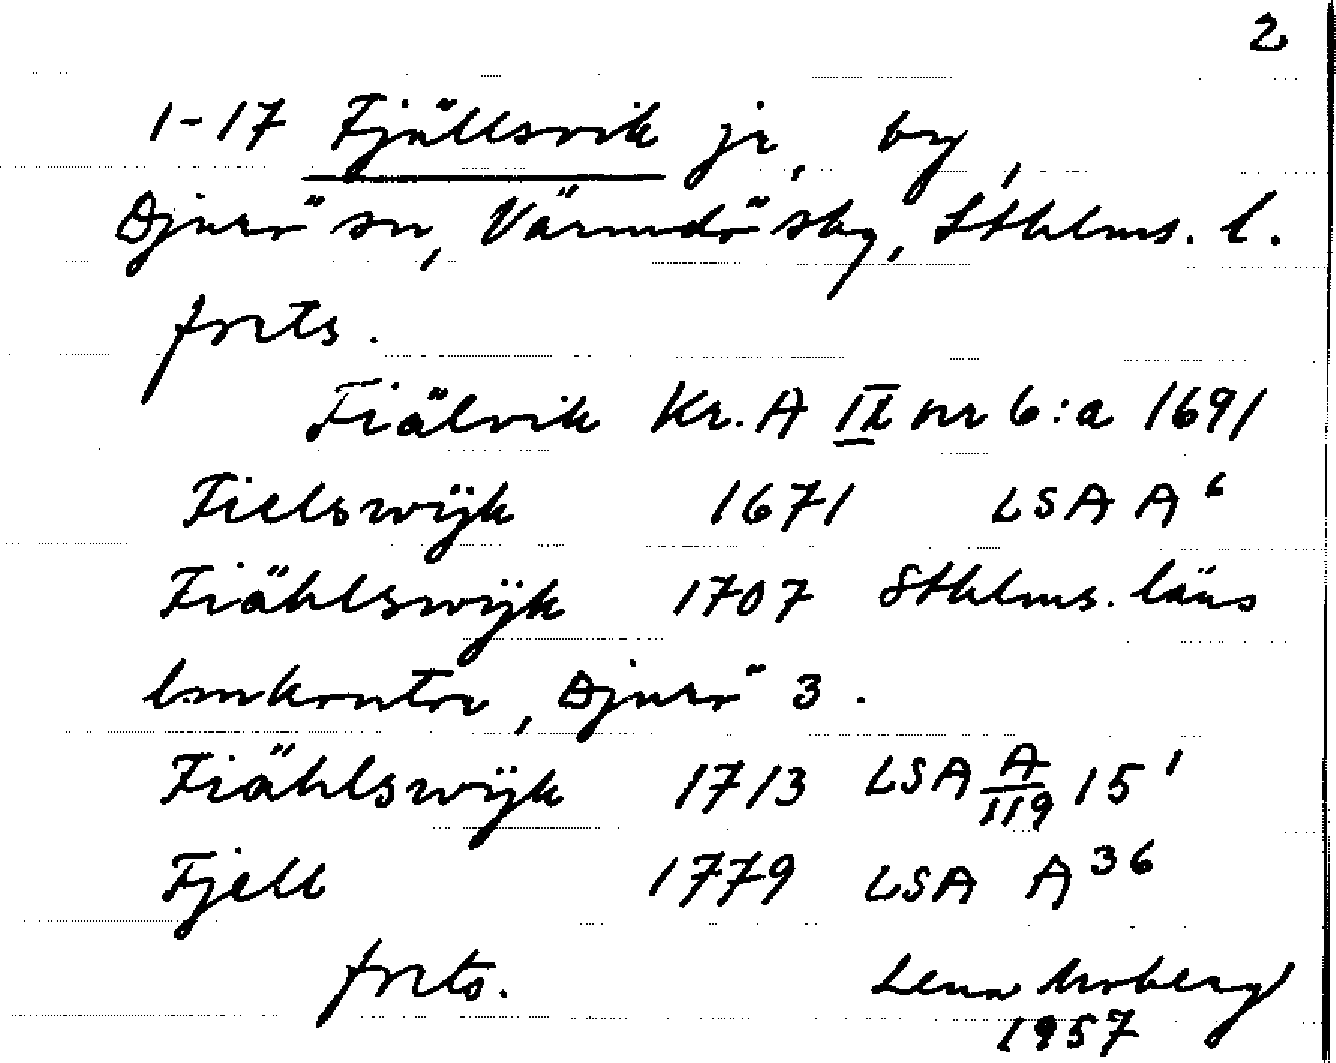 2
1-17 Fjällsvik jr, by,
Djurö sn, Värmdö sky, Sthlms. l.
forts.
Fiälvik Kr. A IX nr 6:a 1691
Fielswijk 1671 LSA A⁶
Fiählswijk 1707 Sthlms. läns
lmkontor, Djurö 3.
Fiählswijk 1713 LSA A/119 15¹
Fjell 1779 LSA A³⁶
forts. Lena Moberg
1957